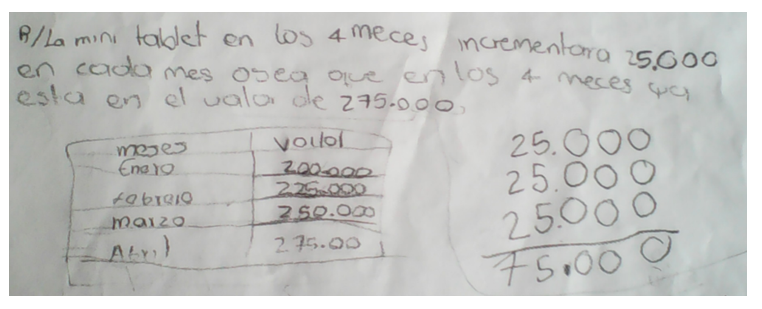 R/La mini tablet en los 4 meces incrementara 25.000
en cada mes osea que en los 4 meces ya
esta en el valor de 275.000.
meses valor
Enero 200.000
febrero 225.000
marzo 250.000
Abril 275.00
25.000
25.000
25.000
75.000